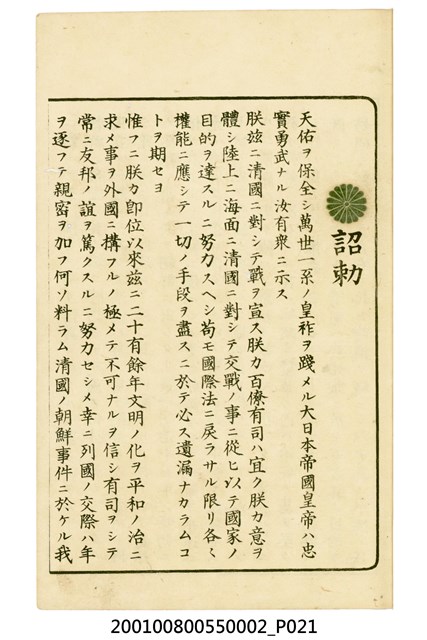 詔勅
天佑ヲ保全シ萬世一系ノ皇祚ヲ踐メル大日本帝國皇帝ハ忠
實勇武ナル汝有衆ニ示ス
朕玆ニ清國ニ對シテ戰ヲ宣ス朕カ百僚有司ハ宜ク朕カ意ヲ
體シ陸上ニ海面ニ清國ニ對シテ交戰ノ事ニ從ヒ以テ國家ノ
目的ヲ達スルニ努力スヘシ苟モ國際法ニ戾ラサル限リ各〻
權能ニ應シテ一切ノ手段ヲ盡スニ於テ必ス遺漏ナカラムコ
トヲ期セヨ
惟フニ朕カ卽位以來玆ニ二十有餘年文明ノ化ヲ平和ノ治ニ
求メ事ヲ外國ニ構フルノ極メテ不可ナルヲ信シ有司ヲシテ
常ニ友邦ノ誼ヲ篤クスルニ努力セシメ幸ニ列國ノ交際ハ年
ヲ逐フテ親密ヲ加フ何ソ料ラム清國ノ朝鮮事件ニ於ケル我
200100800550002_P021